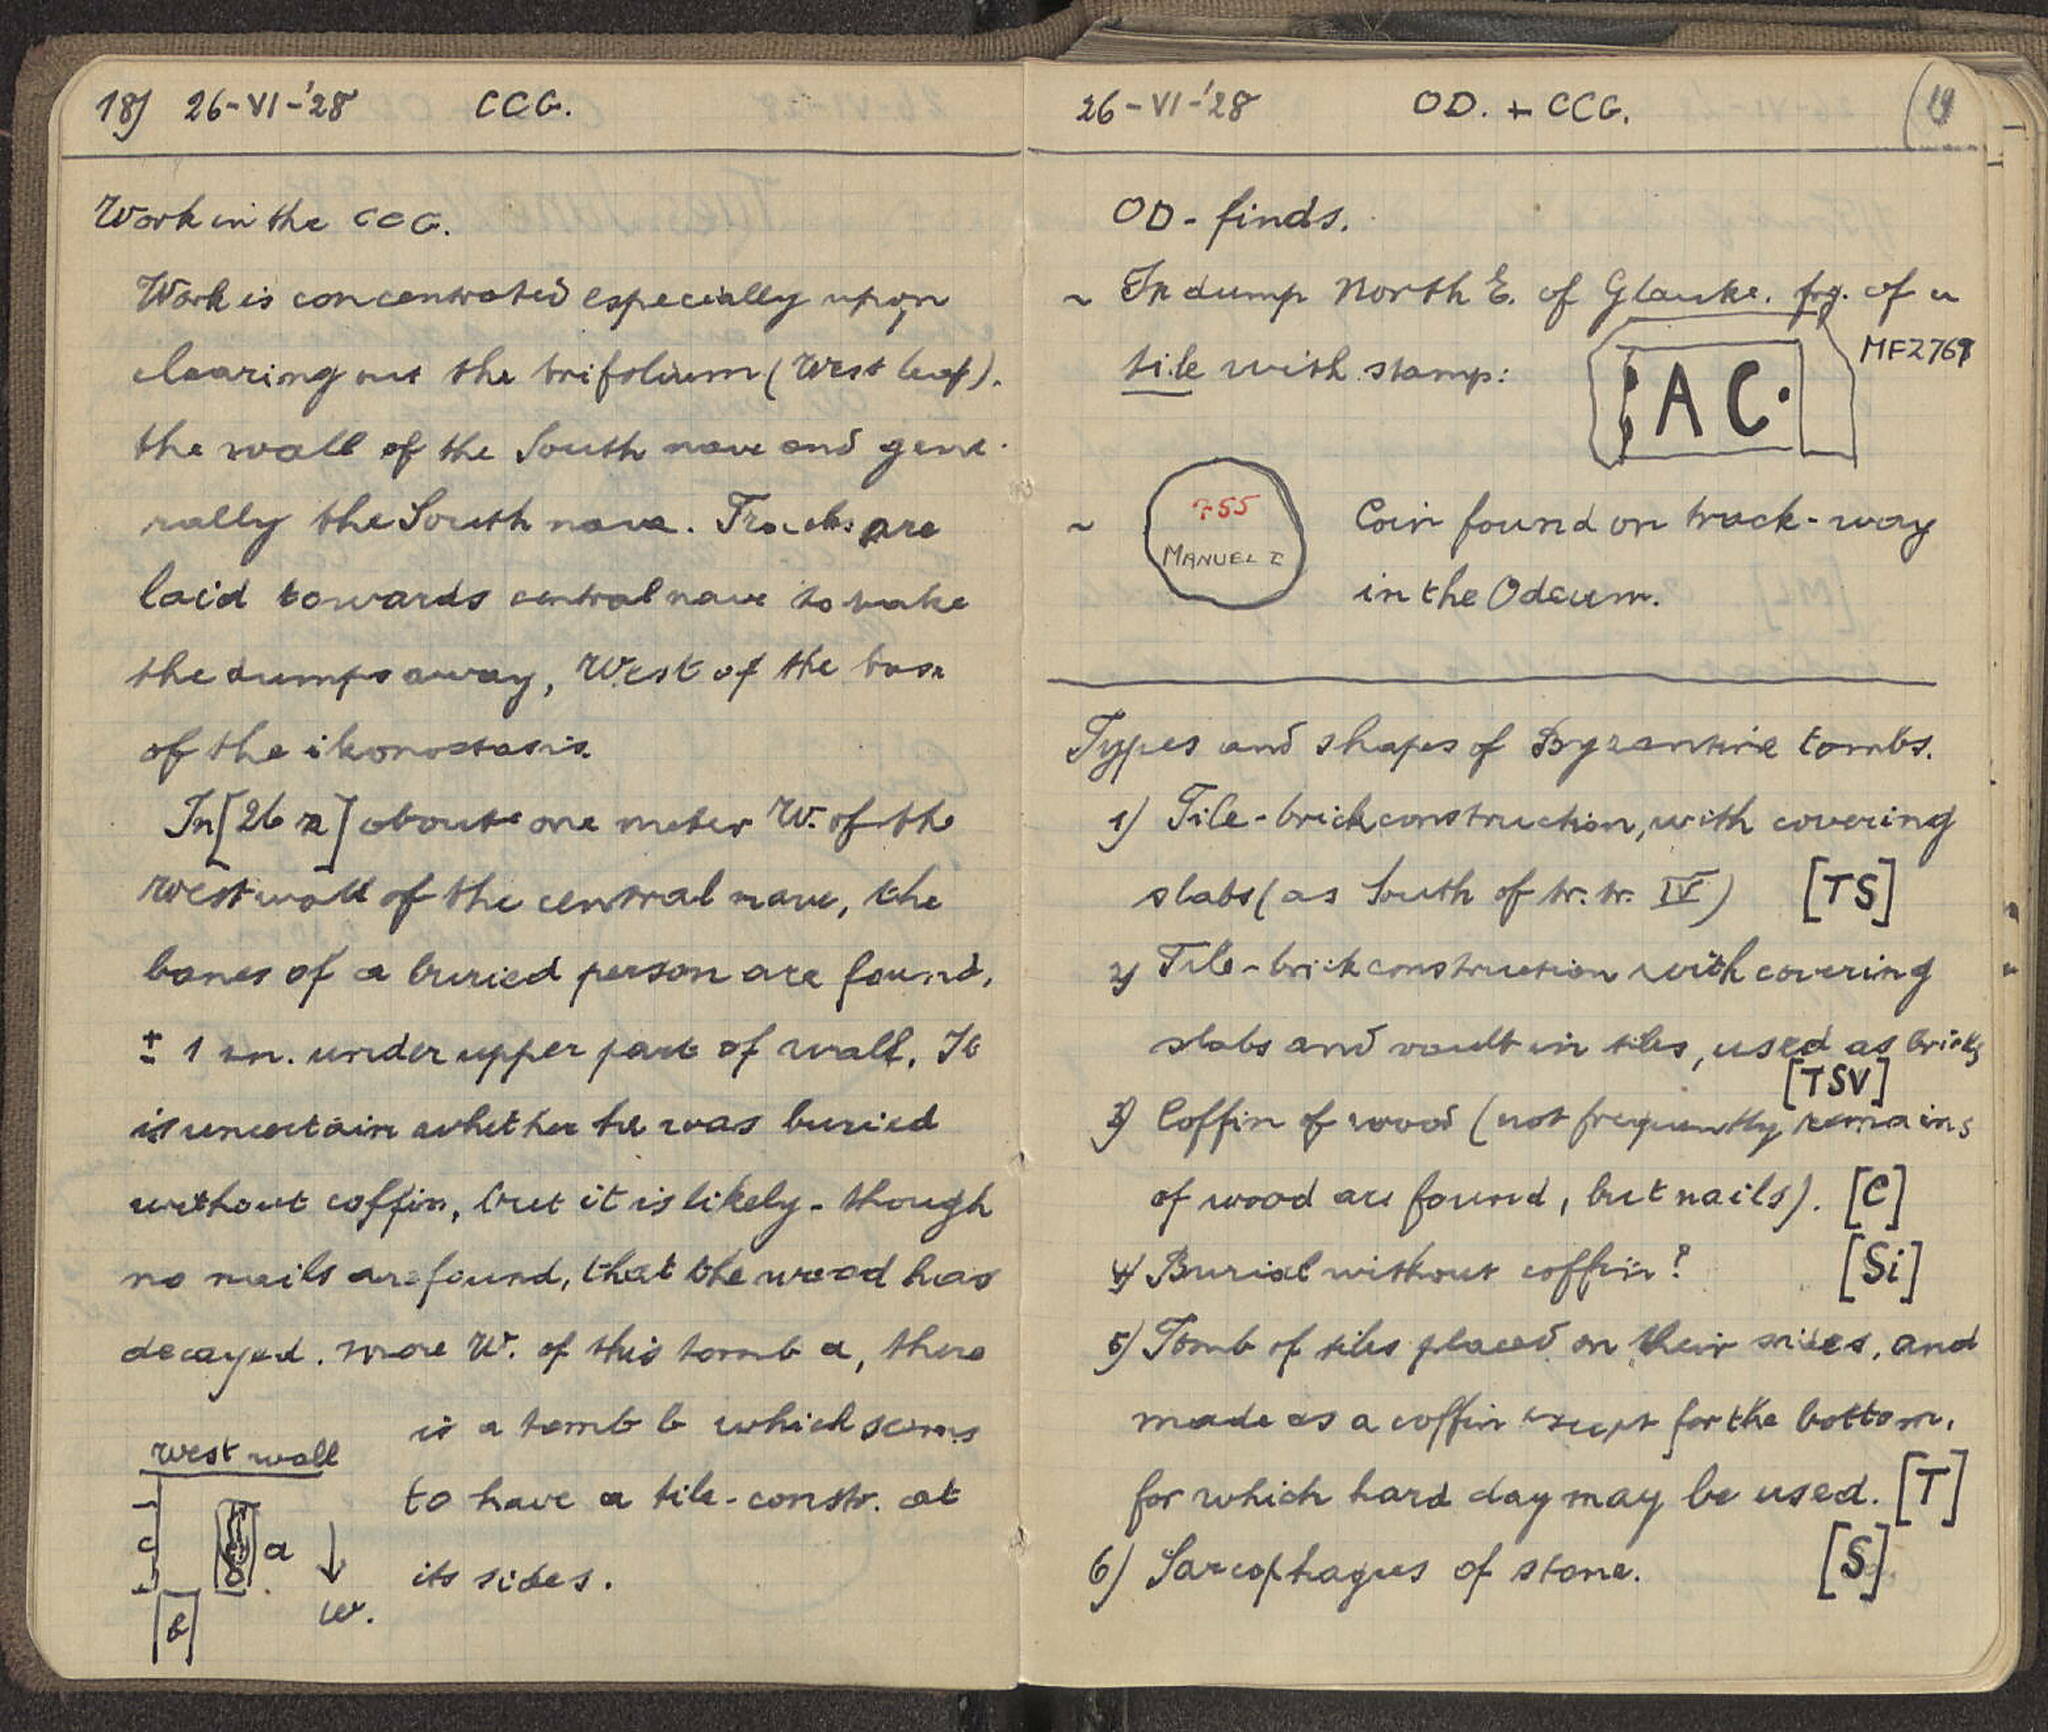 18) 26-VI-'28 CCG.
Work in the CCG.
Work is concentrated especially upon
clearing out the trifolium (West leaf).
the wall of the South nave and gene-
rally the South nave. Tracks are
laid towards central nave to take
the dumps away, West of the base
of the ikonostasis.
In [26 ] about one meter W. of the
West wall of the central nave, the
bones of a buried person are found,
± 1 m. under upper part of wall. It
is uncertain whether he was buried
without coffin, but it is likely - though
no nails are found, that the wood has
decayed. More W. of this tomb a, there
is a tomb b which seems
to have a tile-constr. at
its sides.
west wall
c
a
b
W.
26-VI-'28 OD. + CCG. (19
OD - finds.
~ In dump North E. of Glauke. frg. of a
tile with stamp:
AC·
MF2769
~ 755
MANUEL I
Coin found on track-way
in the Odeum.
Types and shapes of Byzantine tombs.
1) Tile-brick construction, with covering
slabs (as South of tr. tr. IV) [TS]
2) Tile-brick construction with covering
slabs and vault in tiles, used as bricks
[TSV]
3) Coffin of wood (not frequently remains
of wood are found, but nails). [C]
4) Burial without coffin? [Si]
5) Tomb of tiles placed on their sides, and
made as a coffin except for the bottom,
for which hard clay may be used. [T]
6) Sarcophagus of stone. [S]